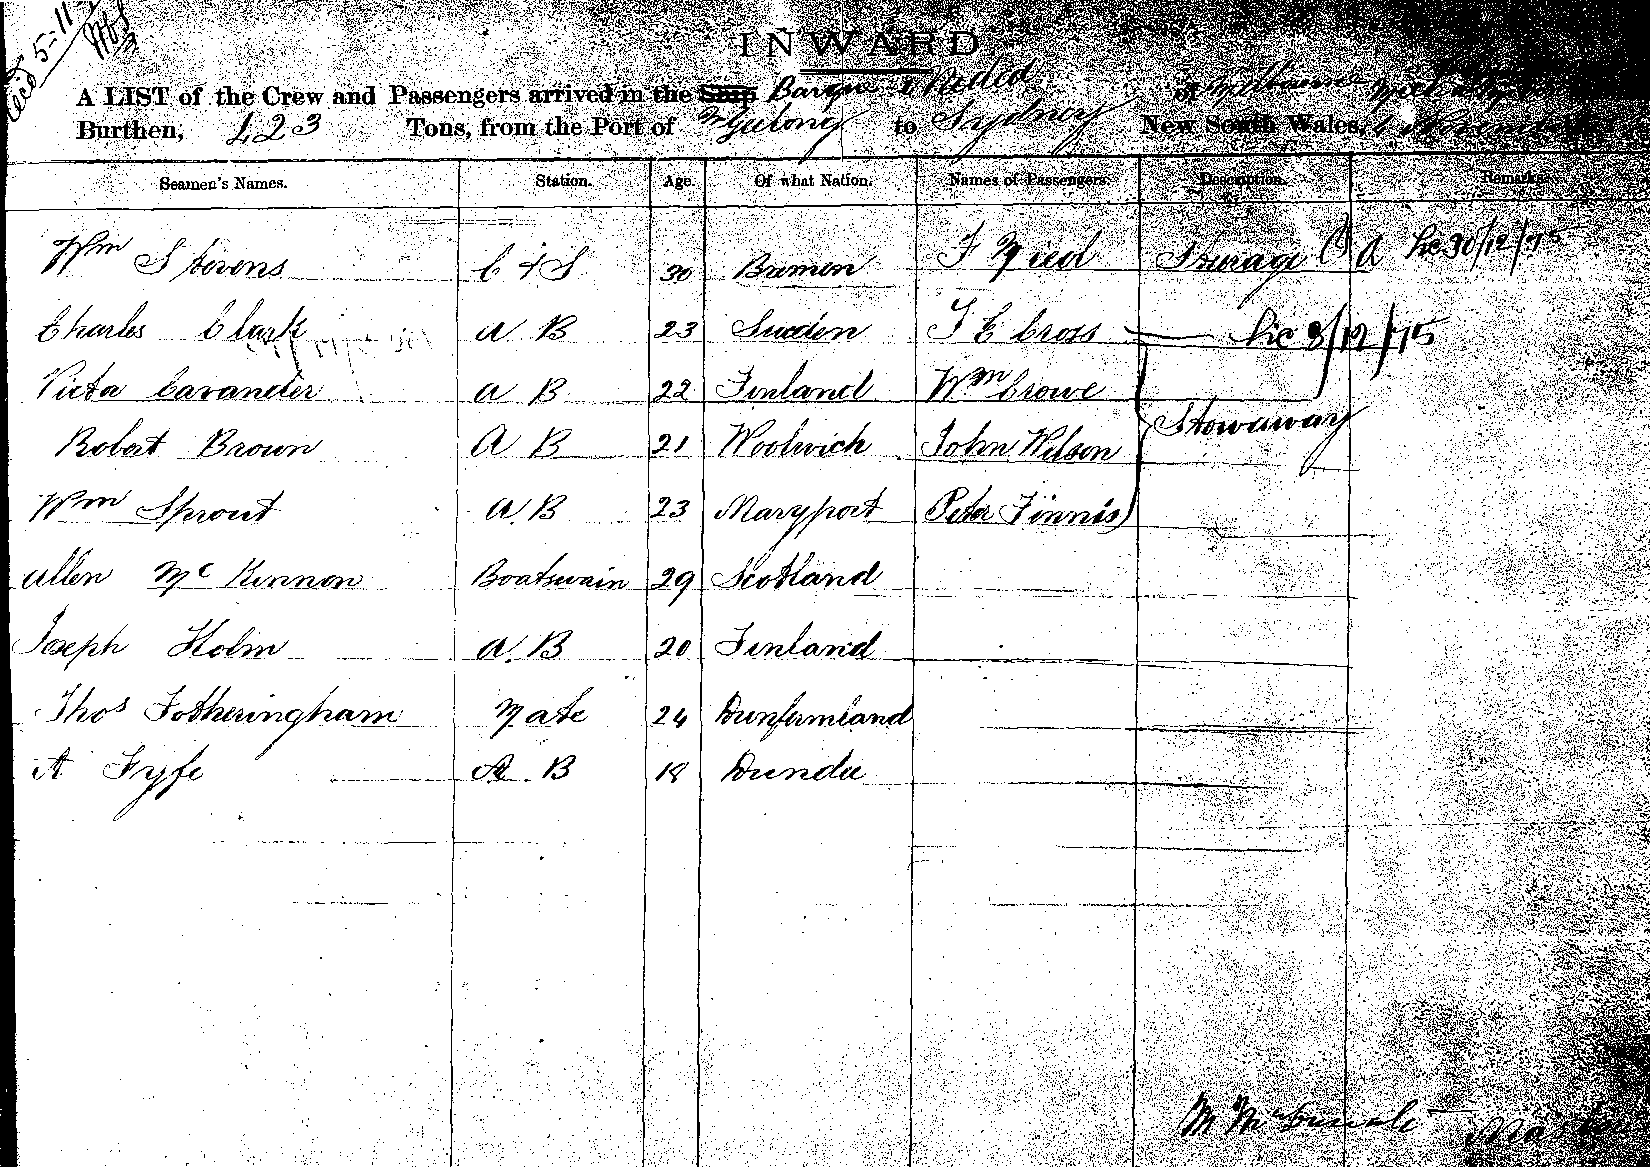 Recd 5-11-
INWARD
A LIST of the Crew and Passengers arrived in the Ship Barque of Melbourne
Burthen, 423 Tons, from the Port of Geelong to Sydney New South Wales, November
Seamen's Names. Station. Age. Of what Nation. Names of Passengers. Description. Remarks.
Wm Stevens C & S 30 Bremen F Steerage
Charles Clark A B 23 Sweden F E Cross 8/12/75
Victa Cavander A B 22 Finland Wm Crowe
Robert Brown A B 21 Woolwich John Wilson Stowaway
Wm Sprout A B 23 Maryport Peter Finnis
Allen McKinnon Boatswain 29 Scotland
Joseph Holm A. B 20 Finland
Thos Fotheringham Mate 24 Dunfermland
A Fyfe A B 18 Dundee